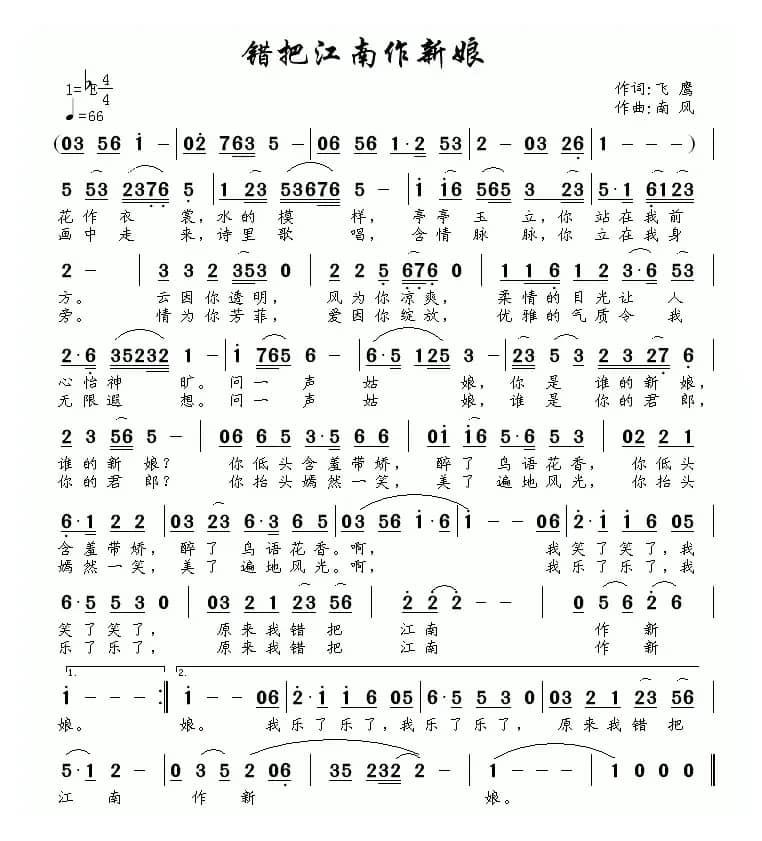 错把江南作新娘
1=♭E 4/4
作词:飞鹰
♩=66
作曲:南风
(03 56 i - | 02 763 5 - | 06 56 1·2 53 | 2 - 03 26 | 1 - - -) |
5 53 2376 5 | 1 23 53676 5 - | i i6 565 3 23 | 5·1 6123
花作衣裳,水的模样,亭亭玉立,你站在我前
画中走来,诗里歌唱,含情脉脉,你立在我身
2 - | 3 3 2 353 0 | 2 2 5 676 0 | 1 1 6 1 2 3·6 53
方。云因你透明,风为你凉爽,柔情的目光让人
旁。情为你芳菲,爱因你绽放,优雅的气质令我
2·6 35232 1 - | i 765 6 - | 6·5 125 3 - | 23 5 3 2 3 27 6
心怡神旷。问一声姑娘,你是谁的新娘,
无限遐想。问一声姑娘,谁是你的君郎,
2 3 56 5 - | 06 6 5 3·5 6 6 | 0i i6 5·6 5 3 | 02 2 1
谁的新娘?你低头含羞带娇,醉了鸟语花香,你低头
你的君郎?你抬头嫣然一笑,美了遍地风光,你抬头
6·1 2 2 | 03 23 6·3 6 5 | 03 56 i·6 | i - - 06 | 2·i i 6 05
含羞带娇,醉了鸟语花香。啊,我笑了笑了,我
嫣然一笑,美了遍地风光。啊,我乐了乐了,我
6·5 5 3 0 | 03 2 1 23 56 | 2 2 2 - - | 0 5 6 2 6
笑了笑了,原来我错把江南作新
乐了乐了,原来我错把江南作新
1.
2.
i - - - :|| i - - 06 | 2·i i 6 05 | 6·5 5 3 0 | 03 2 1 23 56
娘。娘。我乐了乐了,我乐了乐了,原来我错把
5·1 2 - | 0 3 5 2 06 | 35 232 2 - | 1 - - - | 1 0 0 0 ||
江南作新娘。